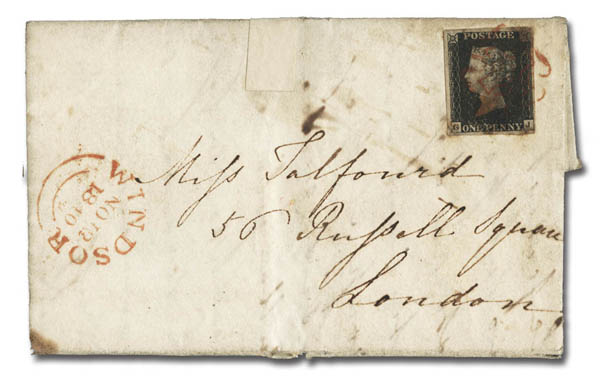 POSTAGE
ONE PENNY
G J
WINDSOR
NO 13
1840
Miss Talfourd
56 Russell Square
London